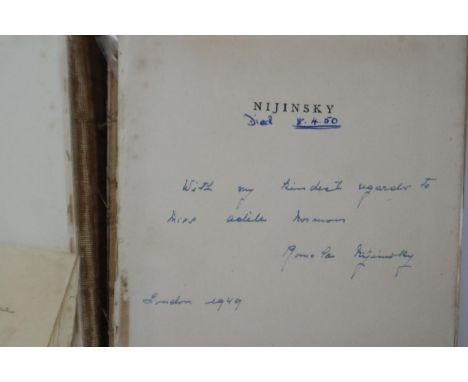 NIJINSKY
Died 8.4.50
With my kindest regards to
Miss Adele Normans
Romola Nijinsky
London 1949